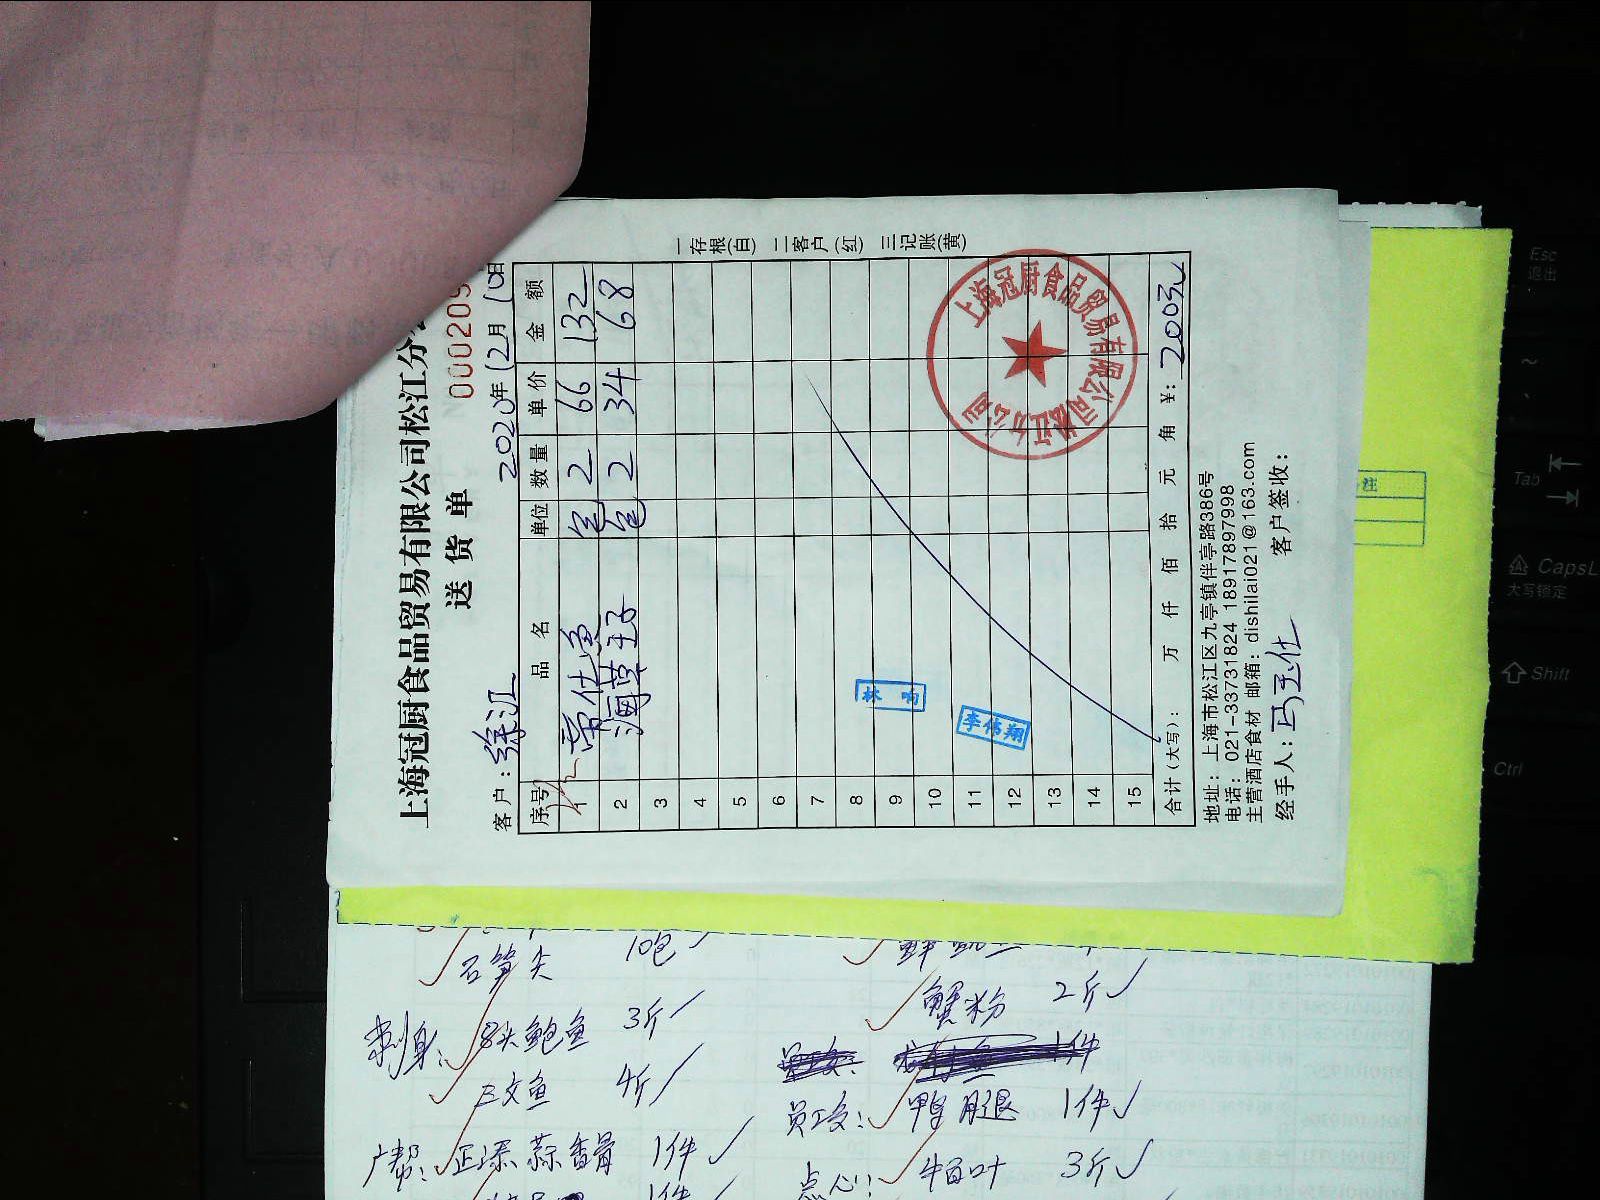 上海冠厨食品贸易有限公司松江分公
送 货 单
0002095
客户: 徐江
2020年12月10日
序号 品名 单位 数量 单价 金额
1 包 2 66 132
2 海草王子 包 2 34 68
3
4
5
6
7
8
9
10
11
12
13
14
15
合计(大写): 万 仟 佰 拾 元 角 ¥: 200元
地址: 上海市松江区九亭镇伴亭路386号
电话: 021-33731824 18917897998
主营酒店食材 邮箱: dishilai021@163.com
经手人: 客户签收:
一存根(白) 二客户(红) 三记账(黄)
上海冠厨食品贸易有限公司松江分公司
林
李伟翔
注
石笋尖 10包
蟹粉 2斤
刺身: 8头鲍鱼 3斤
1件
三文鱼 4斤
员工: 鸭腿 1件
广帮: 正添蒜香骨 1件
点心: 牛百叶 3斤
1件
Esc
退出
~
Tab
CapsL
大写锁定
Shift
Ctrl